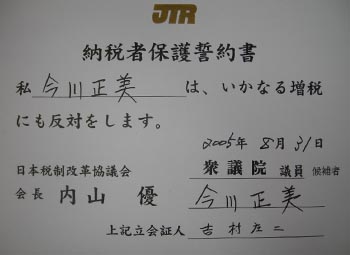 JTR
納税者保護誓約書
私 今川正美 は、いかなる増税
にも反対をします。
2005年 8月 31日
日本税制改革協議会 衆議院 議員 候補者
会長 内山 優 今川正美
上記立会証人 吉村庄二